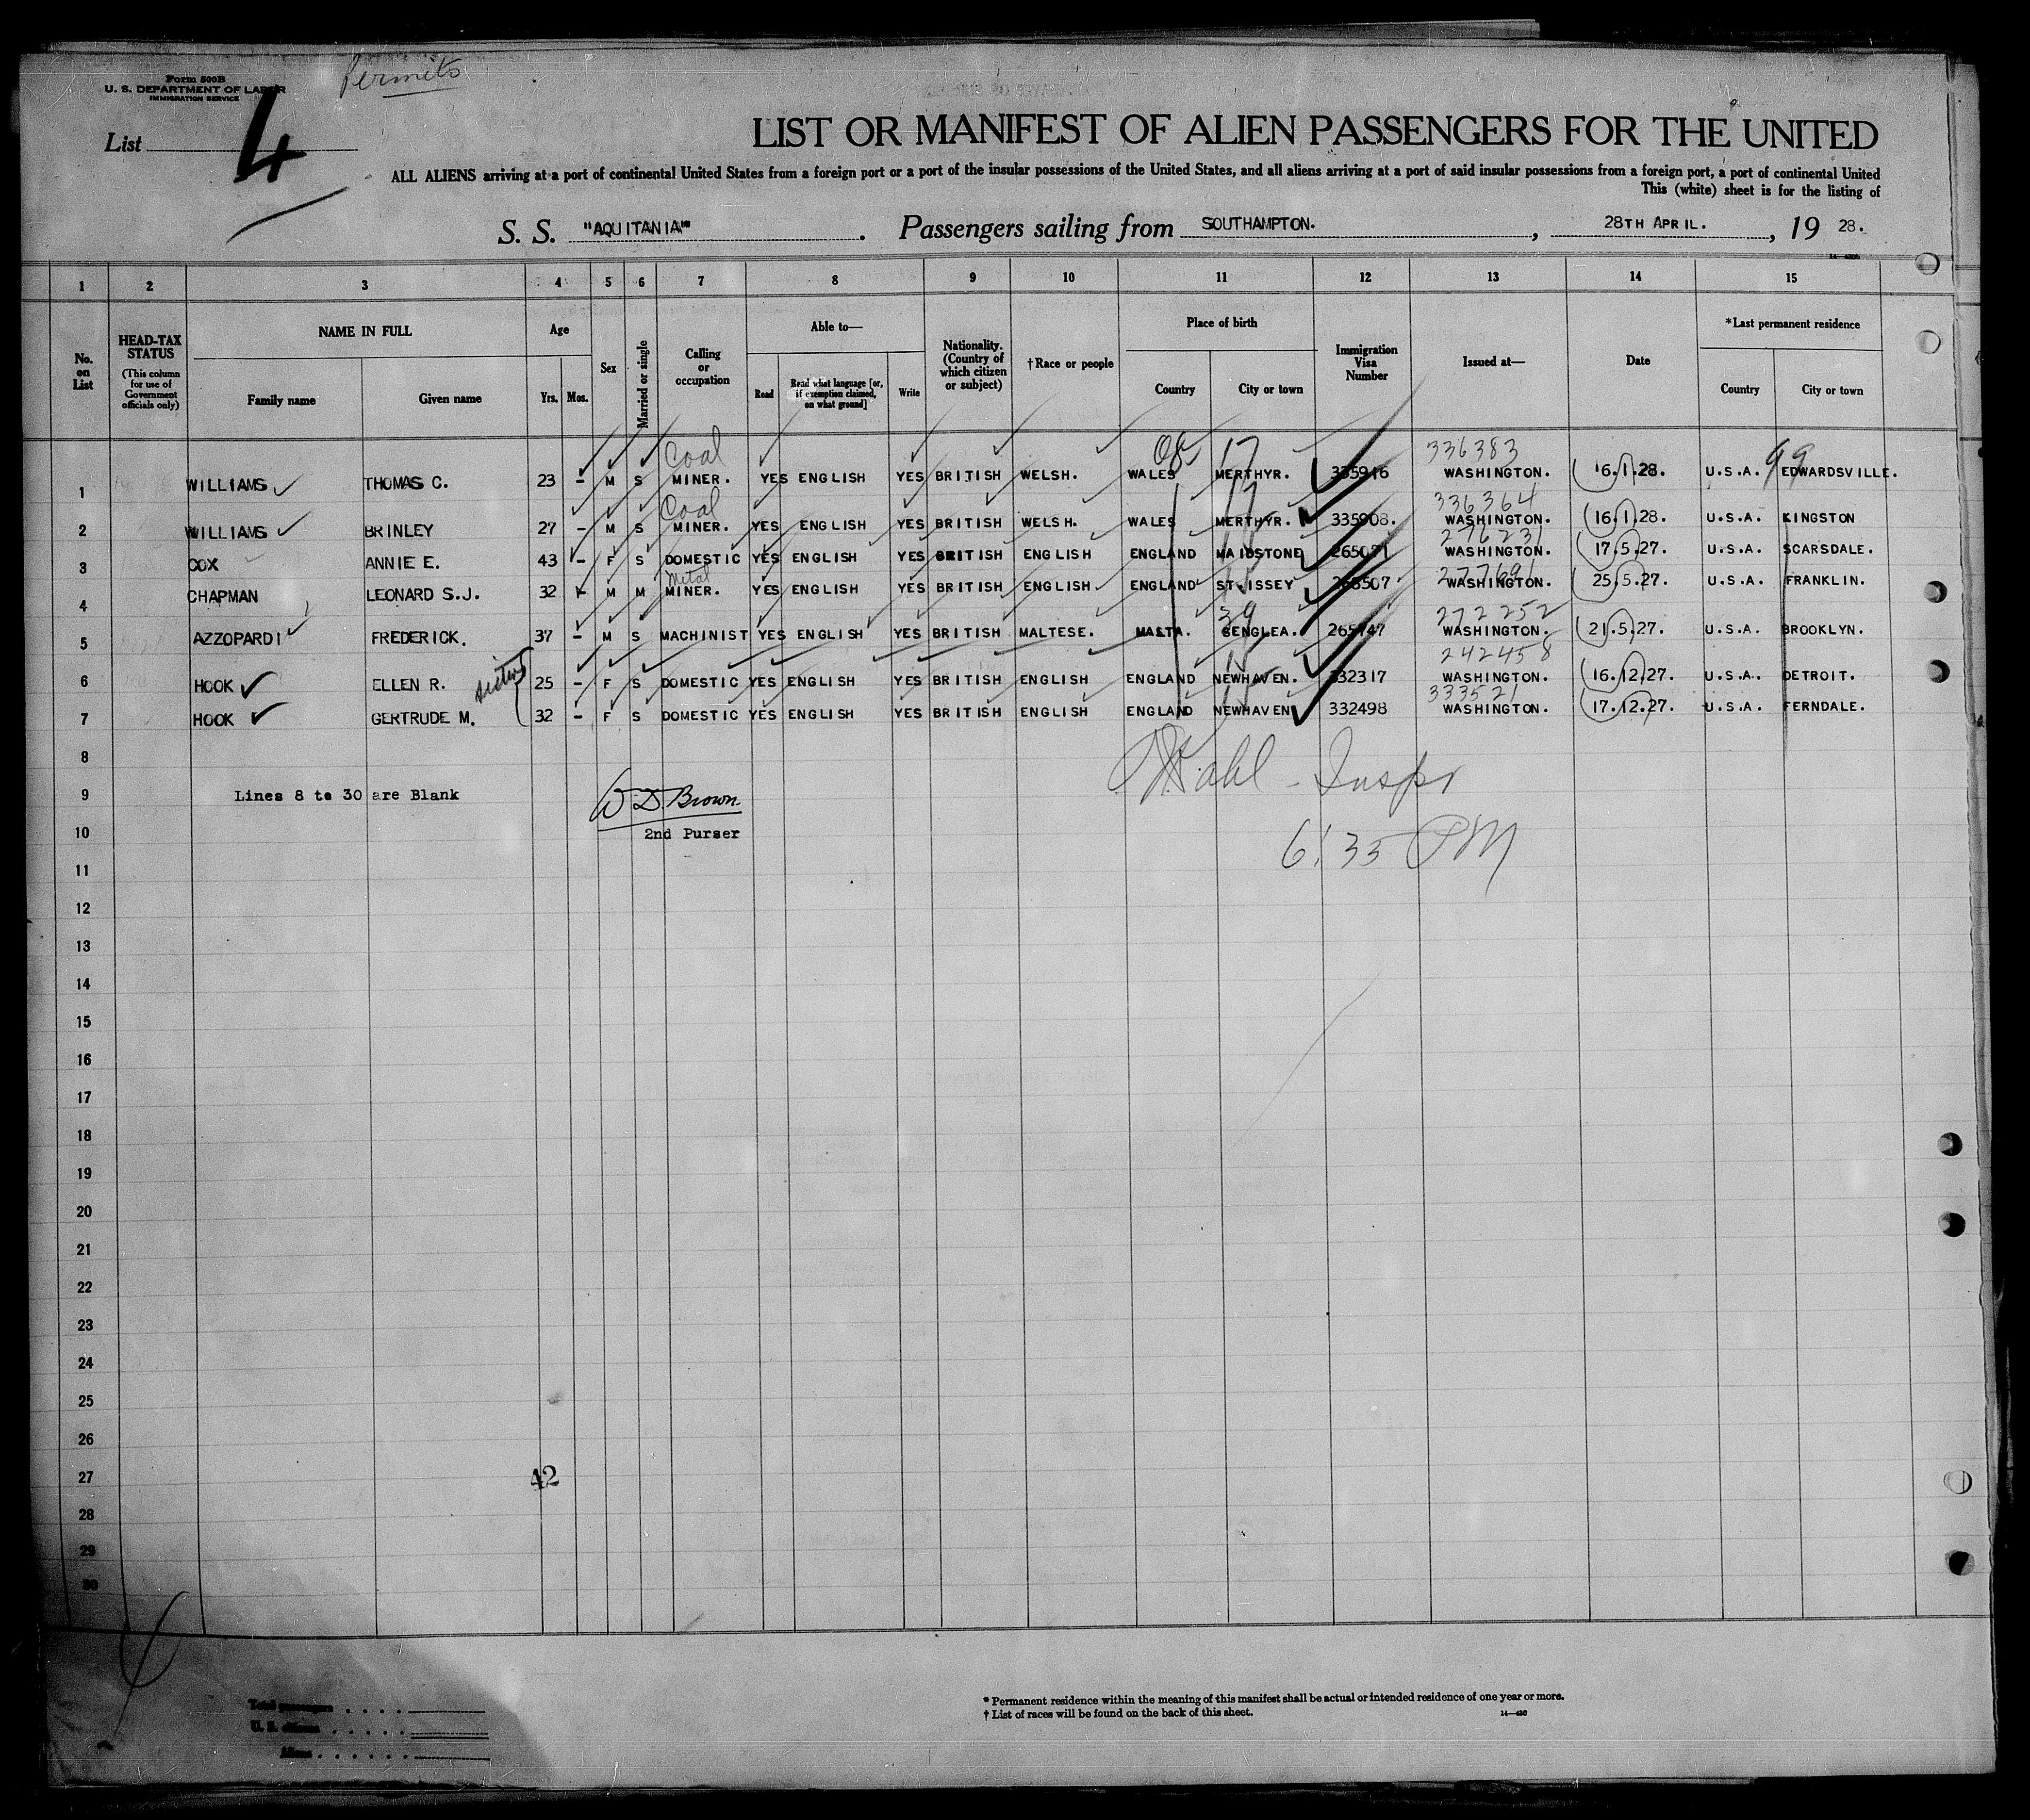 Form 500B
U. S. DEPARTMENT OF LABOR
IMMIGRATION SERVICE
Permits
List 4
LIST OR MANIFEST OF ALIEN PASSENGERS FOR THE UNITED
ALL ALIENS arriving at a port of continental United States from a foreign port or a port of the insular possessions of the United States, and all aliens arriving at a port of said insular possessions from a foreign port, a port of continental United
This (white) sheet is for the listing of
S. S. "AQUITANIA" . Passengers sailing from SOUTHAMPTON. , 28TH APRIL. , 19 28.
1 2 3 4 5 6 7 8 9 10 11 12 13 14 15
No. on List
HEAD-TAX STATUS
(This column for use of Government officials only)
NAME IN FULL
Family name Given name
Age
Yrs. Mos.
Sex
Married or single
Calling or occupation
Able to—
Read Read what language [or, if exemption claimed, on what ground] Write
Nationality. (Country of which citizen or subject)
†Race or people
Place of birth
Country City or town
Immigration Visa Number
Issued at—
Date
*Last permanent residence
Country City or town
Coal 17 336383 99
1 WILLIAMS THOMAS C. 23 - M S MINER. YES ENGLISH YES BRITISH WELSH. WALES MERTHYR. 335946 WASHINGTON. 16.1.28. U.S.A. EDWARDSVILLE.
Coal 17 336364
2 WILLIAMS BRINLEY 27 - M S MINER. YES ENGLISH YES BRITISH WELSH. WALES MERTHYR. 335908. WASHINGTON. 16.1.28. U.S.A. KINGSTON
276231
3 COX ANNIE E. 43 - F S DOMESTIC YES ENGLISH YES BRITISH ENGLISH ENGLAND MAIDSTONE WASHINGTON. 17.5.27. U.S.A. SCARSDALE.
Metal 277691
4 CHAPMAN LEONARD S.J. 32 - M M MINER. YES ENGLISH YES BRITISH ENGLISH ENGLAND ST.ISSEY WASHINGTON. 25.5.27. U.S.A. FRANKLIN.
39 272252
5 AZZOPARDI FREDERICK. 37 - M S MACHINIST YES ENGLISH YES BRITISH MALTESE. MALTA. SENGLEA. 265747 WASHINGTON. 21.5.27. U.S.A. BROOKLYN.
sisters 242458
6 HOOK ELLEN R. 25 - F S DOMESTIC YES ENGLISH YES BRITISH ENGLISH ENGLAND NEWHAVEN. 332317 WASHINGTON. 16.12.27. U.S.A. DETROIT.
333521
7 HOOK GERTRUDE M. 32 - F S DOMESTIC YES ENGLISH YES BRITISH ENGLISH ENGLAND NEWHAVEN 332498 WASHINGTON. 17.12.27. U.S.A. FERNDALE.
8
Wahl - Inspr
9 Lines 8 to 30 are Blank W D Brown.
10 2nd Purser
6:35 PM
11
12
13
14
15
16
17
18
19
20
21
22
23
24
25
26
27 42
28
29
30
Total passengers
U. S. citizens
Aliens
* Permanent residence within the meaning of this manifest shall be actual or intended residence of one year or more.
† List of races will be found on the back of this sheet.
14—430